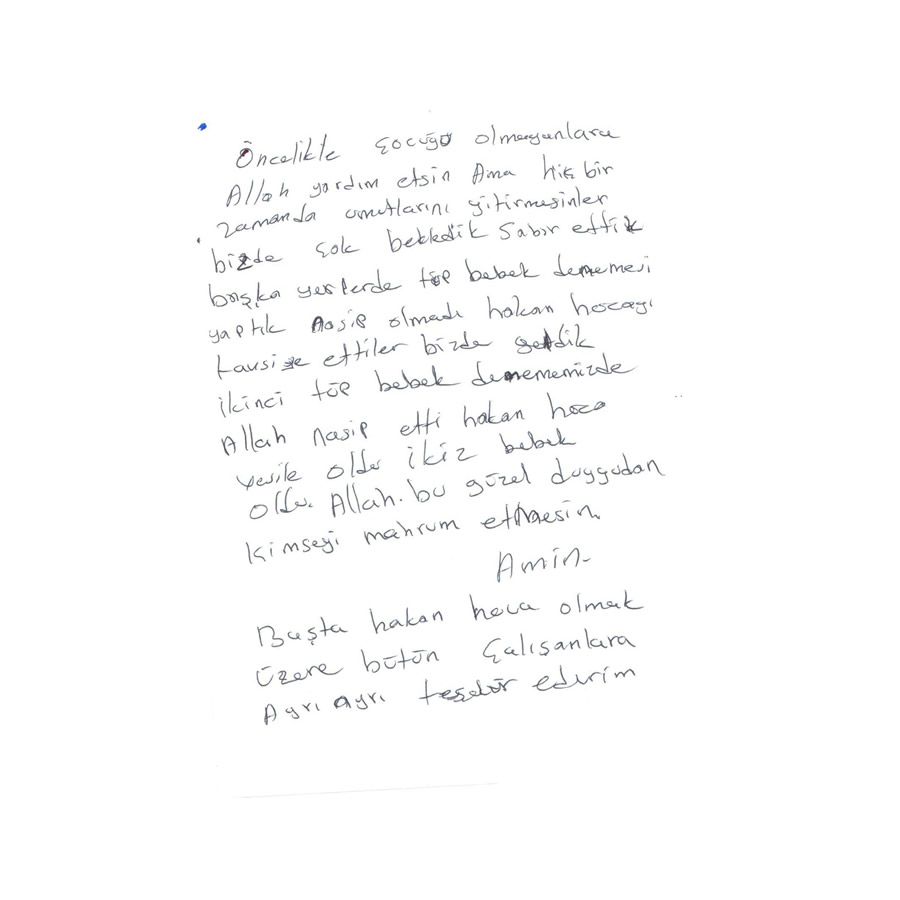 Öncelikle çocuğu olmayanlara
Allah yardım etsin Ama hiç bir
zamanda umutlarını yitirmesinler
bizde çok bekledik Sabır ettik
başka yerlerde tüp bebek denemesi
yaptık nasip olmadı hakan hocayı
tavsiye ettiler bizde geldik
ikinci tüp bebek denememizde
Allah nasip etti hakan hoca
vesile oldu ikiz bebek
oldu. Allah. bu güzel duygudan
kimseyi mahrum etmesin.
Amin-
Başta hakan hoca olmak
üzere bütün çalışanlara
Ayrı ayrı teşekür ederim